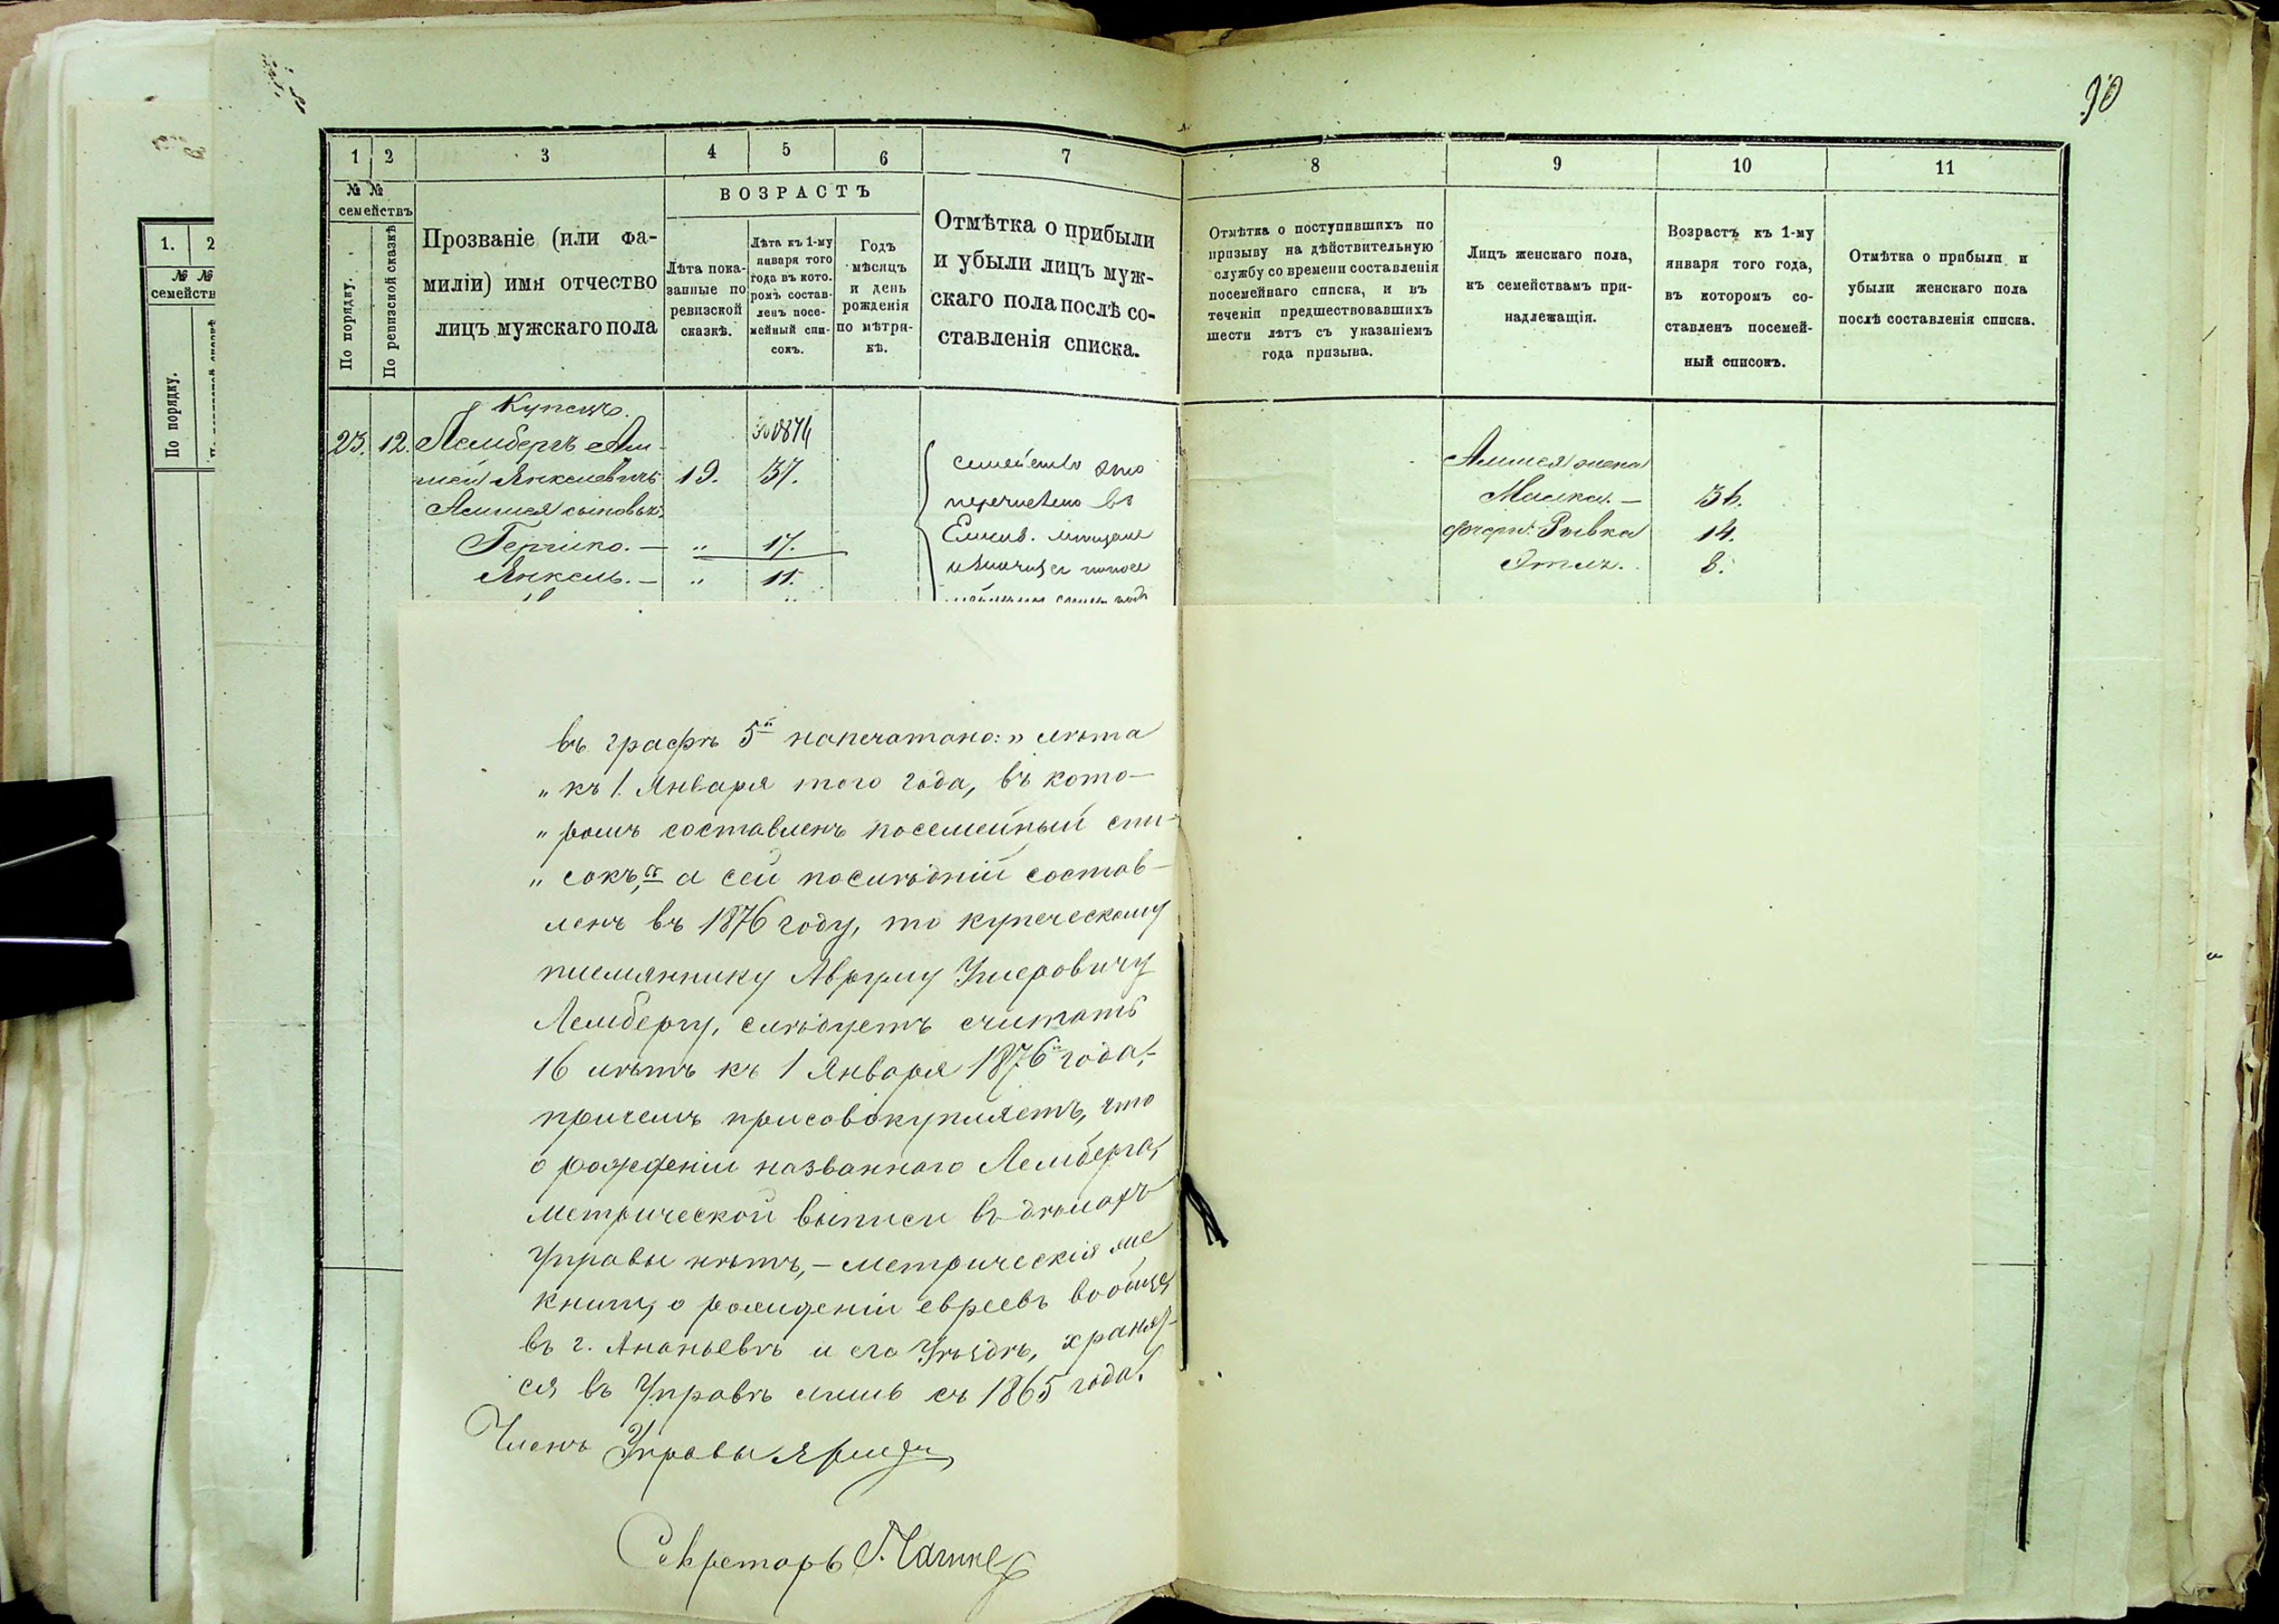 90
1 2 3 4 5 6 7 8 9 10 11
№ №
семействъ
По порядку.
По ревизской сказкѣ
Прозваніе (или фа-
миліи) имя отчество
лицъ мужскаго пола
ВОЗРАСТЪ
Лѣта пока-
занные по
ревизской
сказкѣ.
Лѣта къ 1-му
января того
года въ кото-
ромъ состав-
ленъ посе-
мейный спи-
сокъ.
Годъ
мѣсяцъ
и день
рожденія
по мѣтри-
кѣ.
Отмѣтка о прибыли
и убыли лицъ муж-
скаго пола послѣ со-
ставленія списка.
Отмѣтка о поступившихъ по
призыву на дѣйствительную
службу со времени составленія
посемейнаго списка, и въ
теченіи предшествовавшихъ
шести лѣтъ съ указаніемъ
года призыва.
Лицъ женскаго пола,
къ семействамъ при-
надлежащія.
Возрастъ къ 1-му
января того года,
въ которомъ со-
ставленъ посемей-
ный списокъ.
Отмѣтка о прибыли и
убыли женскаго пола
послѣ составленія списка.
1. 2
№ №
семейств
По порядку.
Купецъ.
23. 12. Лембергъ
Янкелевичъ 19. 37.
сыновья
Гершко. — „ 17.
Янкель. — „ 11.
1876
семейство это
перечислено въ
мещане
жена
Малка. — 36.
дочери: Рывка 14.
8.
въ графѣ 5й напечатано: „ лѣта
„ къ 1. Января того года, въ кото-
„ ромъ составленъ посемейный спи-
„ сокъ,“ а сей послѣдній состав-
ленъ въ 1876 году, то купеческому
племяннику Авруму Умеровичу
Лембергу, слѣдуетъ считать
16 лѣтъ къ 1 Января 1876 года,
причемъ присовокупляетъ, что
о рожденіи названнаго Лемберга,
Метрической выписи въ дѣлахъ
Управы нѣтъ, — метрическія же
книги, о рожденіи евреевъ вообще,
въ г. Ананьевѣ и его Уѣздѣ, хранят-
ся въ Управѣ лишь съ 1865 года.
Членъ Управы
Секретарь